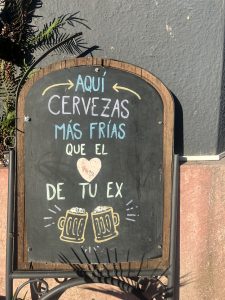 AQUÍ
CERVEZAS
MÁS FRÍAS
QUE EL
DE TU EX